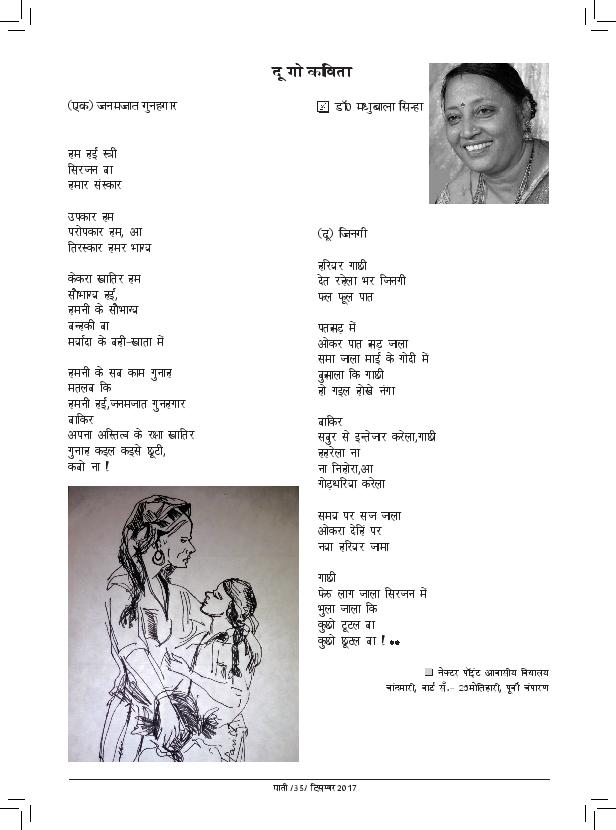 दू गो कविता
(एक) जनमजात गुनहगार
डॉ0 मधुबाला सिन्हा
हम हईं स्त्री
सिरजन बा
हमार संस्कार
उपकार हम
परोपकार हम, आ
तिरस्कार हमर भाग्य
केकरा खातिर हम
सौभाग्य हईं,
हमनी के सौभाग्य
बन्हकी बा
मर्यादा के बही-खाता में
हमनी के सब काम गुनाह
मतलब कि
हमनी हईं,जनमजात गुनहगार
बाकिर
अपना अस्तित्व के रक्षा खातिर
गुनाह कइल कइसे छूटी,
कबो ना !
(दू) जिनगी
हरियर गाछी
देत रहेला भर जिनगी
फल फूल पात
पतझड़ में
ओकर पात झड़ जाला
समा जाला माई के गोदी में
बुझाला कि गाछी
हो गइल होखे नंगा
बाकिर
सबुर से इन्तेजार करेला,गाछी
हहरेला ना
ना निहोरा,आ
गोड़थरिया करेला
समय पर सज जाला
ओकरा देहिं पर
नया हरियर जामा
गाछी
फेरु लाग जाला सिरजन में
भुला जाला कि
कुछो टूटल बा
कुछो छूटल बा ! ●●
नेक्टर पॉइंट आवासीय विद्यालय
चांदमारी, वार्ड सं.- 25मोतिहारी, पूर्वी चंपारण
पाती /35/ दिसम्बर 2017